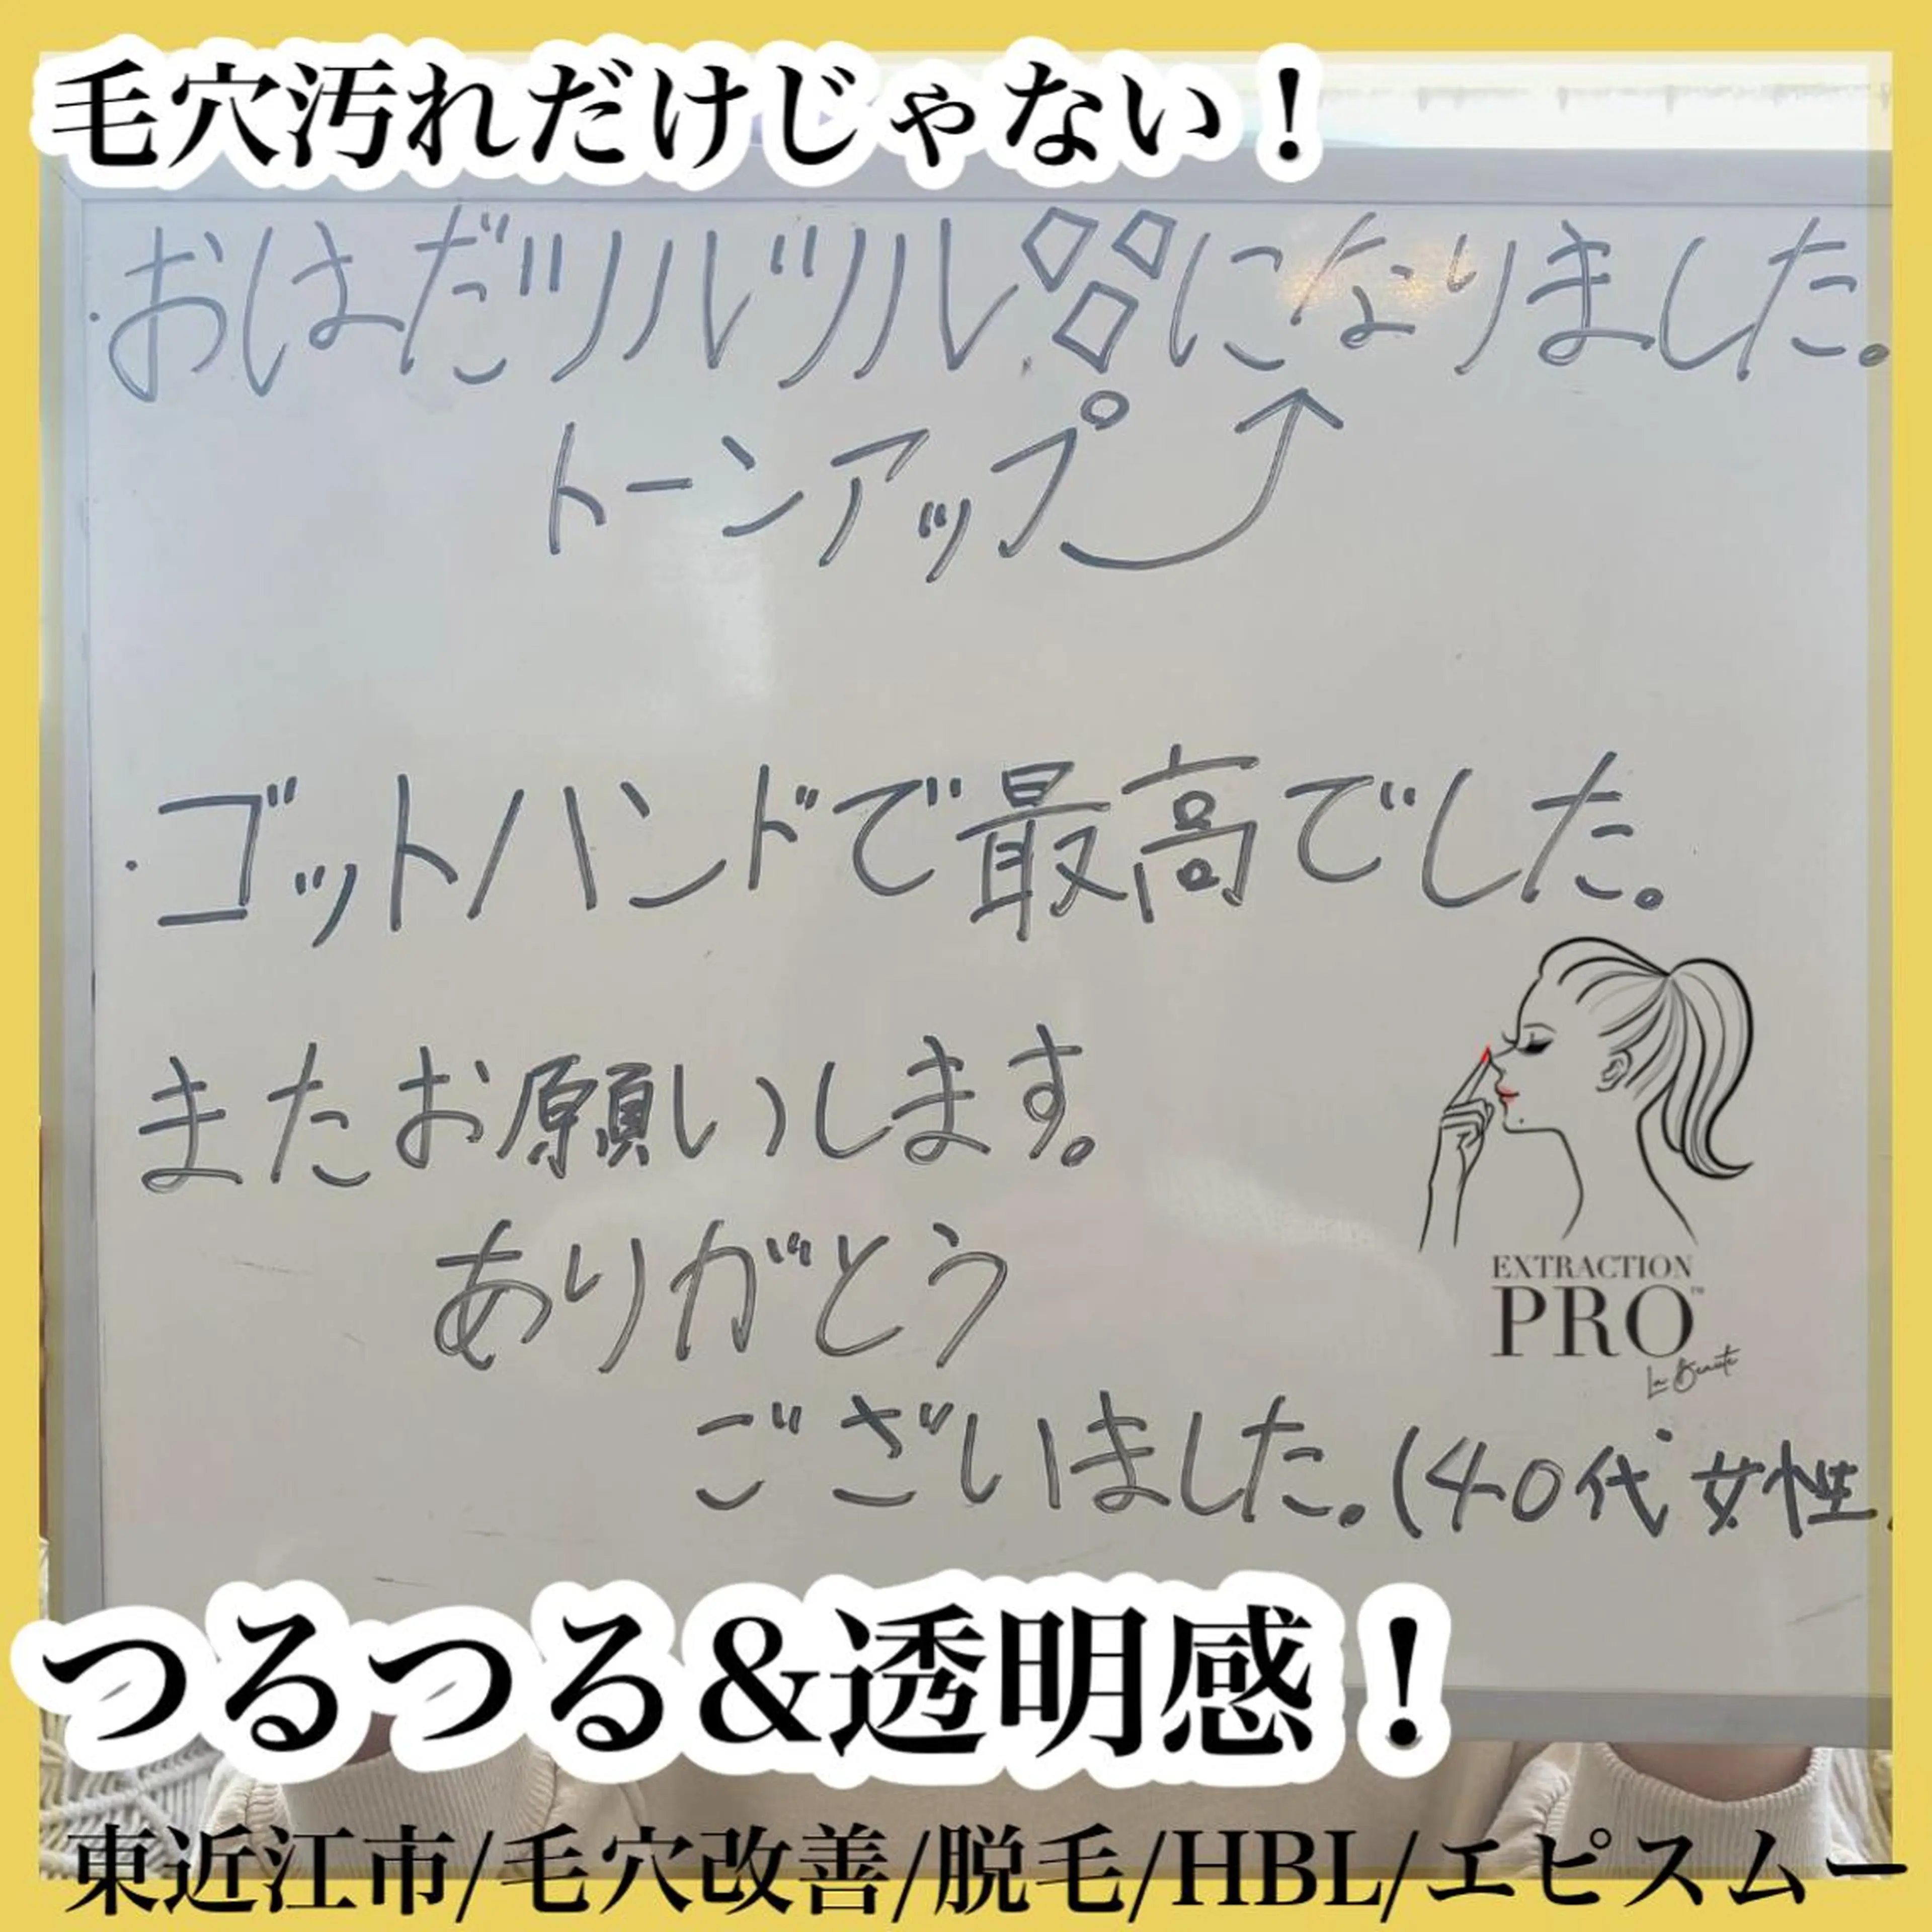 毛穴汚れだけじゃない！
・おはだツルツル◇◇◇になりました。
トーンアップ
・ゴットハンドで最高でした。
またお願いします。
ありがとう
ございました。(40代女性)
EXTRACTION
PRO™
La Beauté
つるつる&透明感！
東近江市/毛穴改善/脱毛/HBL/エピスムー